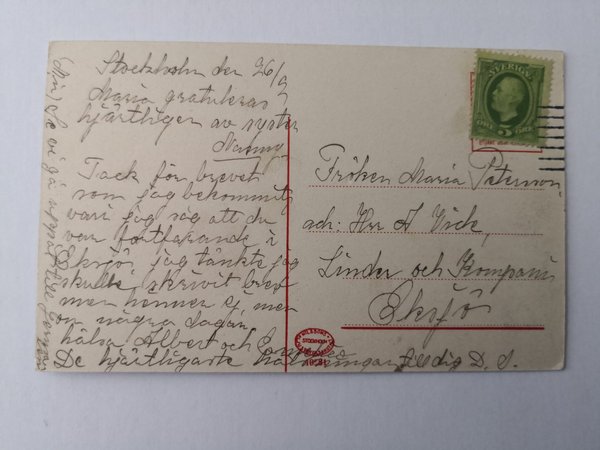 Stockholm den 26/2
Maria gratuleras
hjärtligen av syster
Nanny
Tack för brevet
som jag bekommit,
vari jag såg att du
var fortfarande i
Eksjö, jag tänkte jag
skulle skrivit brev
men hinner ej, men
om några dagar
hälsa Albert och
De hjärtligaste hälsningar till dig D. S.
SVERIGE
5
ÖRE
Fröken Maria Peterson,
adr. Hr A Wick,
Linder och Kompani
Eksjö
STOCKHOLM